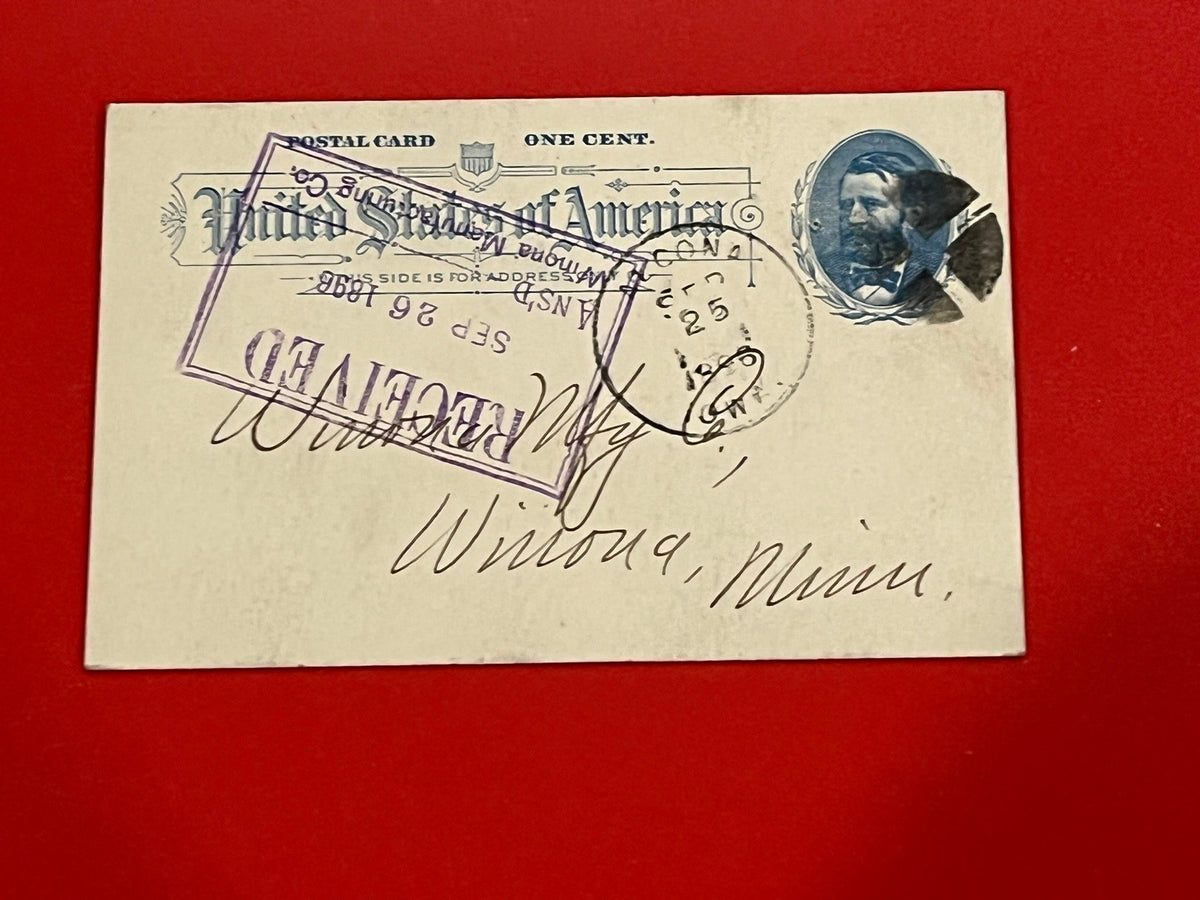 POSTAL CARD ONE CENT.
United States of America
THIS SIDE IS FOR ADDRESS ONLY
RECEIVED
SEP 26 1893
ANS'D
Winona Manufacturing Co.
25
Winona Mfg Co,
Winona, Minn.